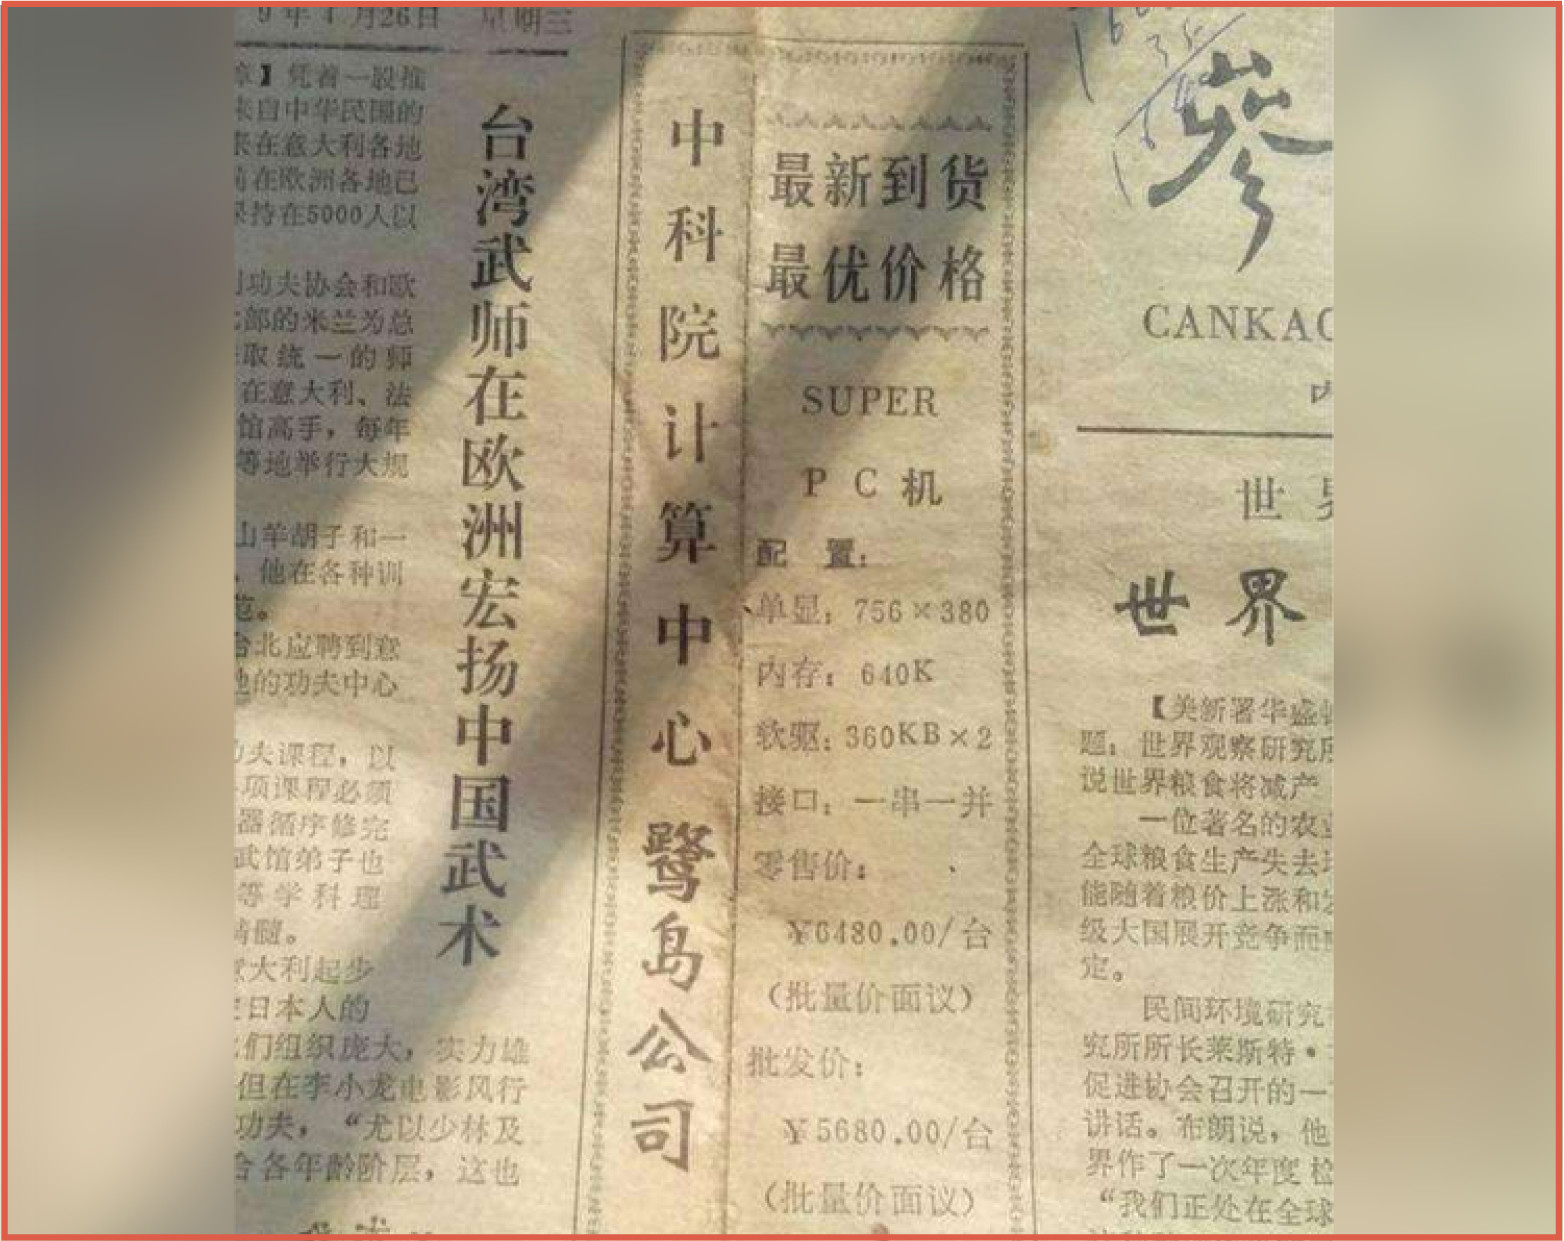 9年4月26日 星期三
章】凭着一股推
来自中华民国的
来在意大利各地
前在欧洲各地已
保持在5000人以
功夫协会和欧
部的米兰为总
取统一的师
在意大利、法
馆高手，每年
等地举行大规
山羊胡子和一
，他在各种训
范。
台北应聘到意
地的功夫中心
功夫课程，以
项课程必须
器循序修完
武馆弟子也
等学科理
精髓。
意大利起步
日本人的
他们组织庞大，实力雄
但在李小龙电影风行
功夫，“尤以少林及
合各年龄阶层，这也
台湾武师在欧洲宏扬中国武术
中科院计算中心鹭岛公司
最新到货
最优价格
SUPER
PC机
配置：
单显：756×380
内存：640K
软驱：360KB×2
接口：一串一并
零售价：
¥6480.00/台
（批量价面议）
批发价：
¥5680.00/台
（批量价面议）
参
CANKAO
内
世界
世界
【美新署华盛
题：世界观察研究所
说世界粮食将减产
一位著名的农业
全球粮食生产失去
能随着粮价上涨和
级大国展开竞争而
定。
民间环境研究
究所所长莱斯特·
促进协会召开的一
讲话。布朗说，他
界作了一次年度检
“我们正处在全球